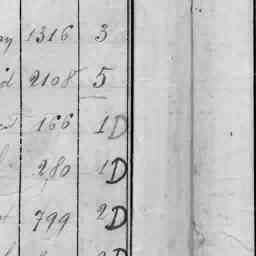 1316 3
2108 5
166 1D
280 1D
799 2D
D